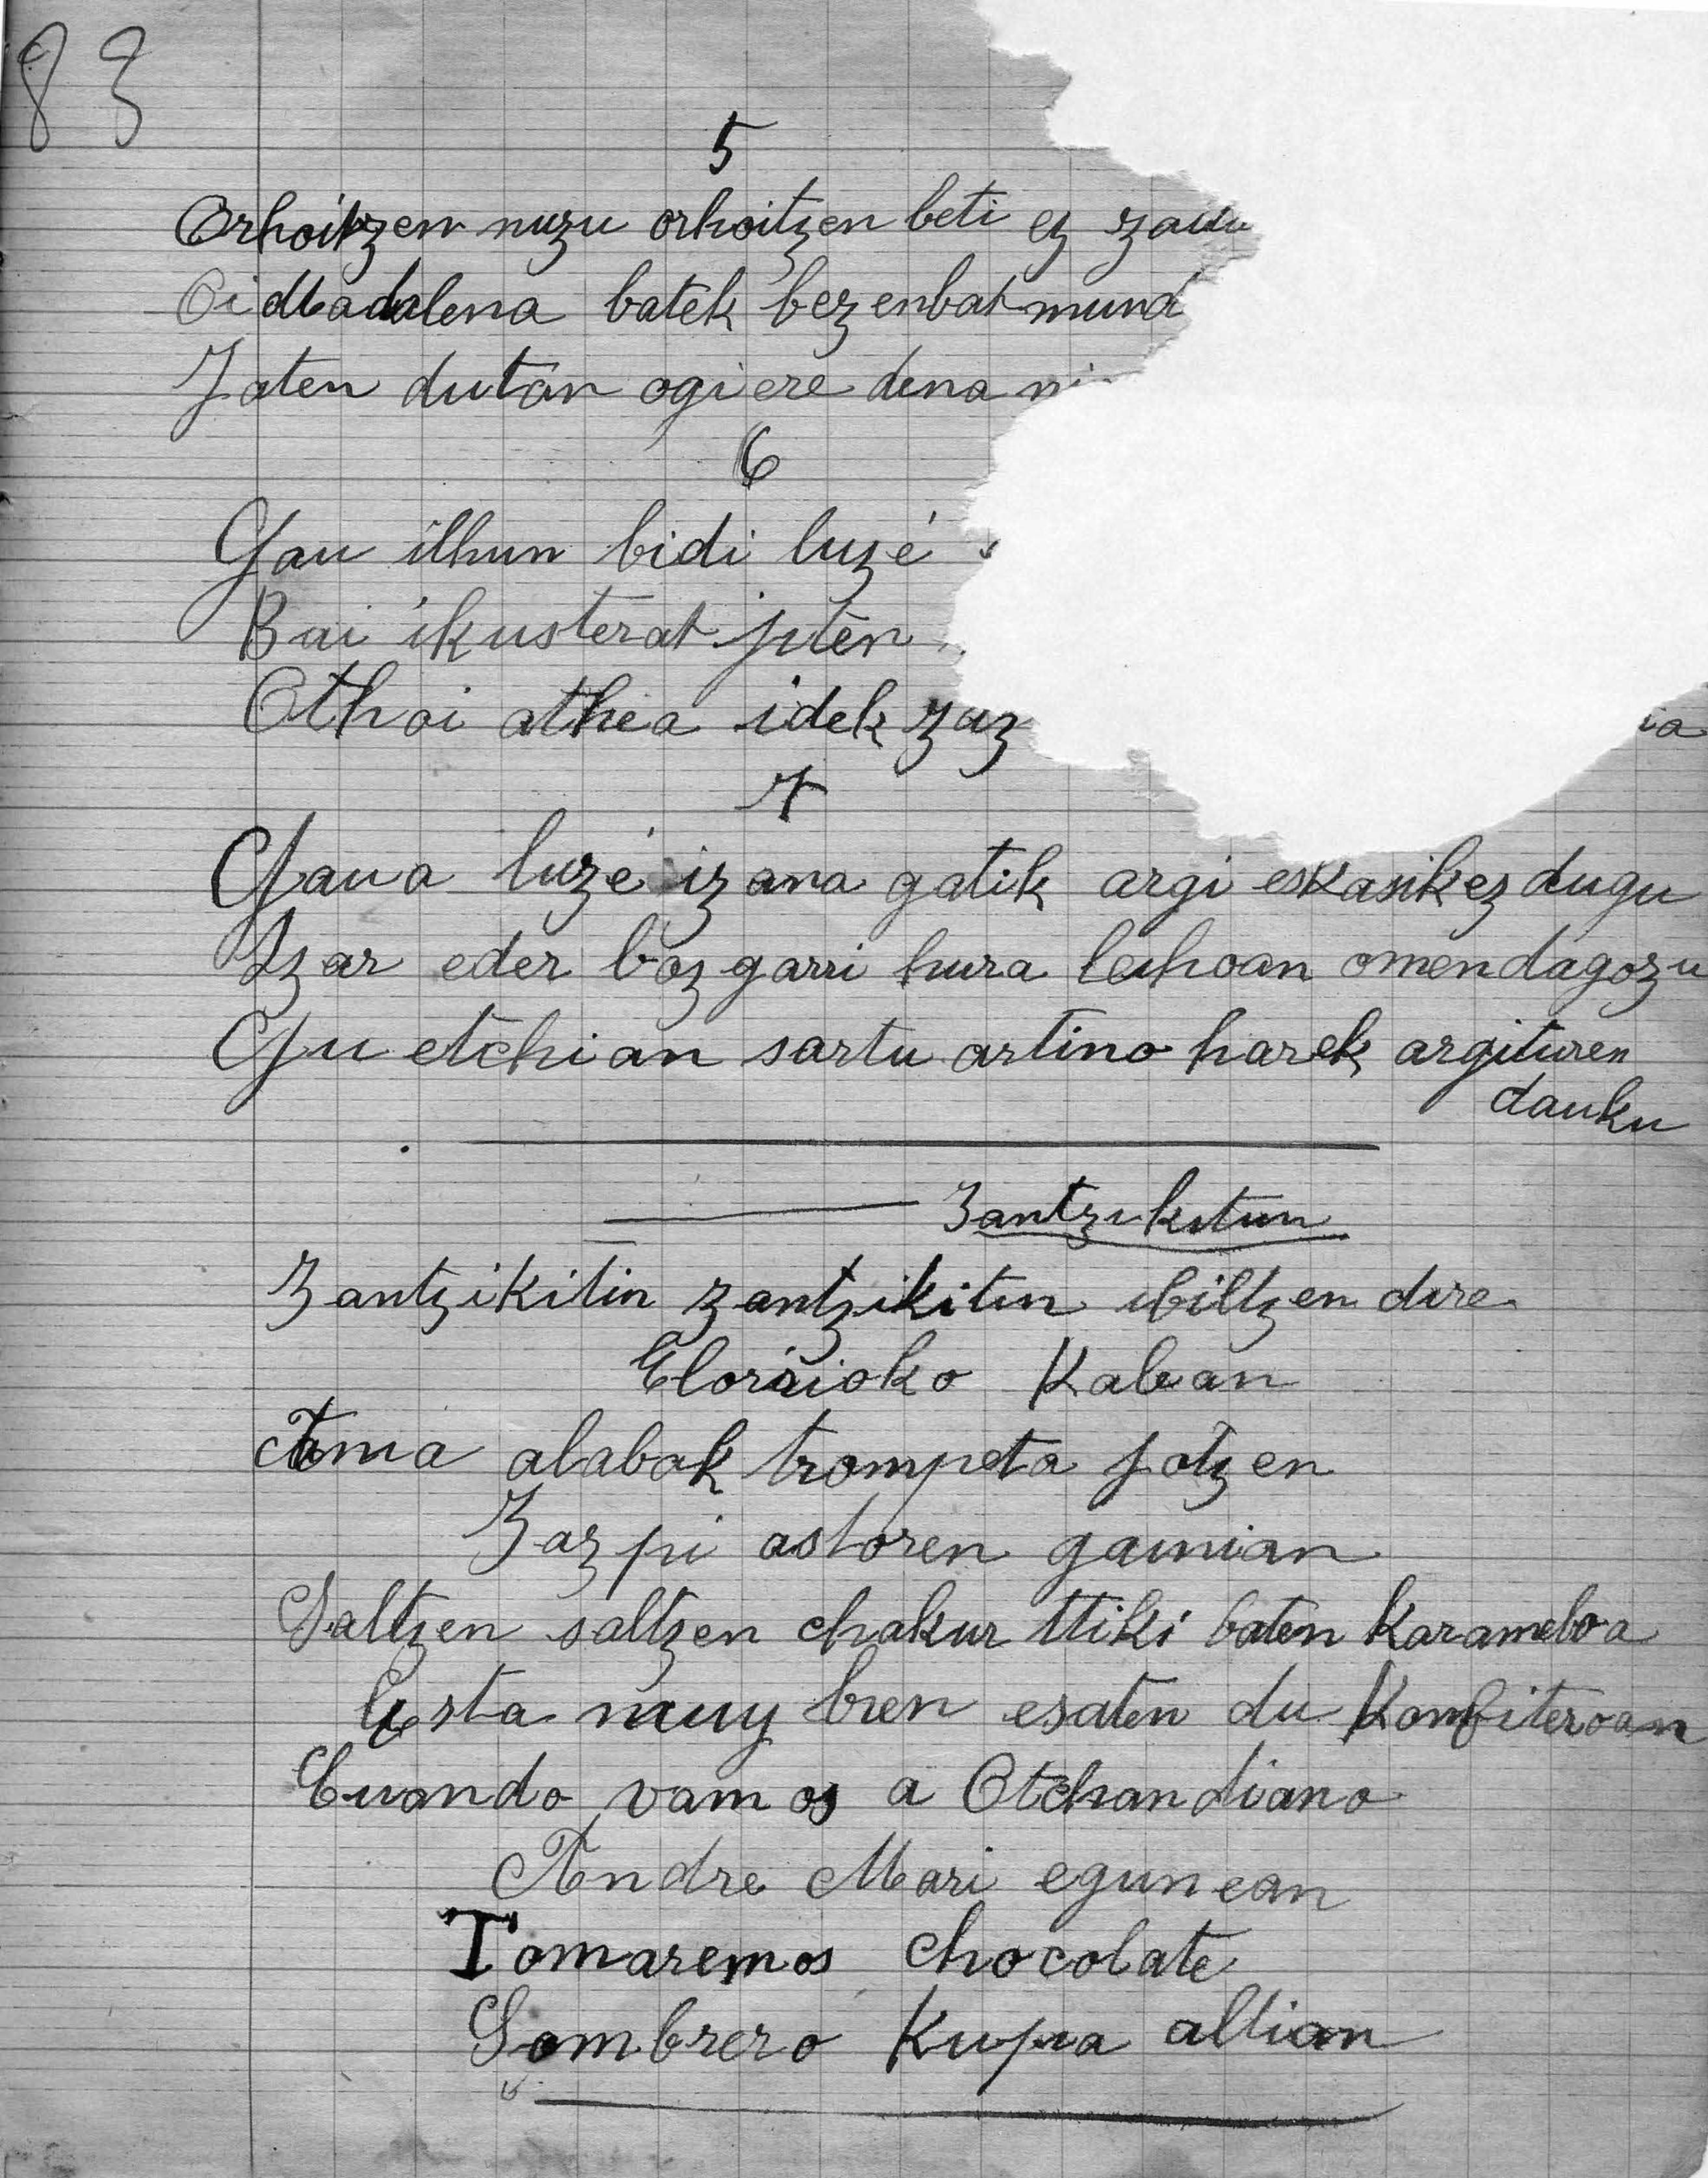 83
5
Orhoitzen nuzu orhoitzen beti ez
Oi Madalena batek bezenbat
Jaten dutan ogi ere dena
6
Gau ilhun bidi luzé
Bai ikusterat juten
Othoi athea idek
7
Gaua luzé izana gatik argi eskasik ez dugu
Izar eder bozgarri hura leihoan omen dagozu
Gu etchian sartu artino harek argituren
dauku
Zantzikitun
Zantzikitin zantzikitin ibiltzen dire
Elorrioko Kalean
Ama alabak trompeta jotzen
Zazpi astoren gainian
Saltzen saltzen chakur ttiki baten karameloa
Esta muy bien esaten du Konfiteroan
Cuando vamos a Otchandiano
Andre Mari egunean
Tomaremos chocolate
Sombrero Kupia altian